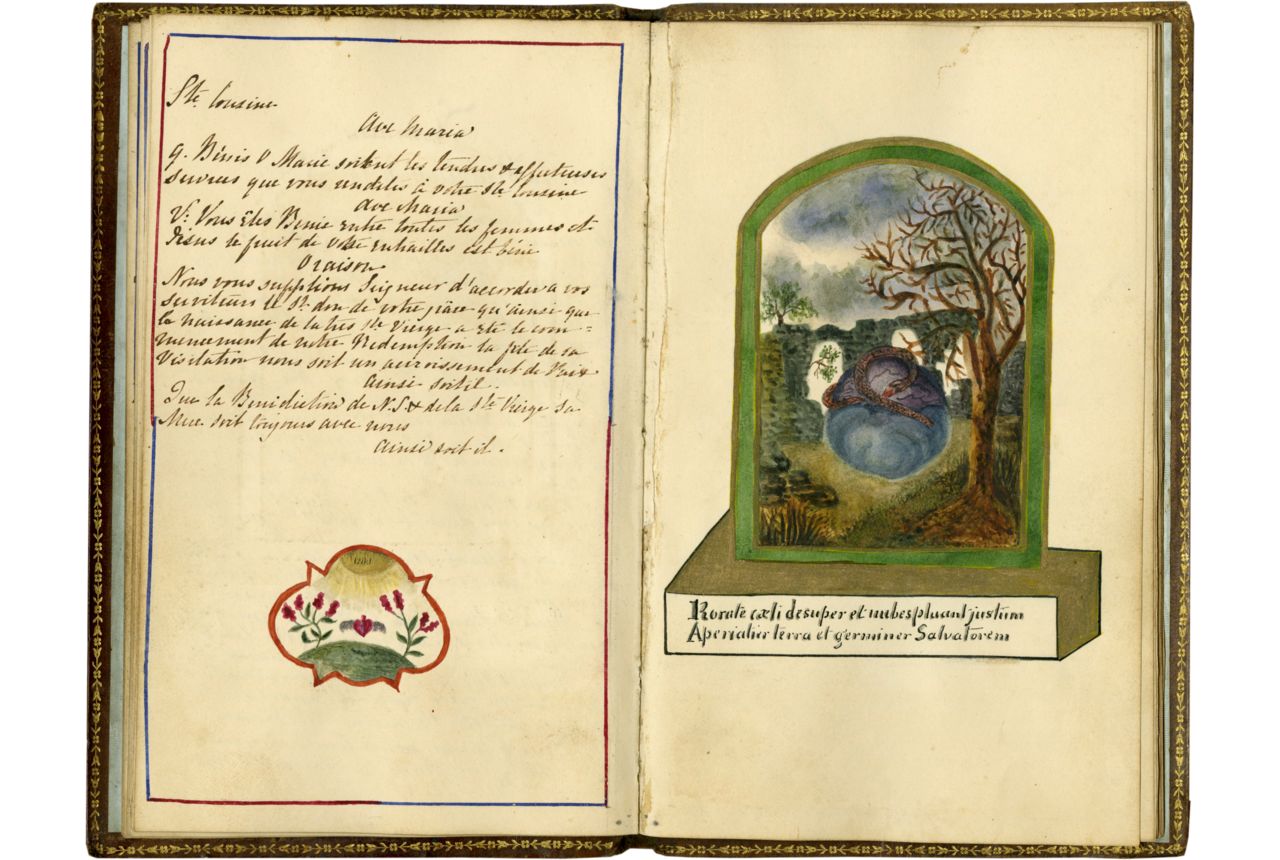 Ste Cousine
Ave Maria
9. Bénis O Marie soient les tendres & affectueuses
services que vous rendites à votre Ste Cousine
Ave Maria
V: Vous Etes Benie entre toutes les femmes et
Jésus le fruit de votre entrailles est béni
Oraison
Nous vous supplions Seigneur d'accorder a vos
serviteurs le St. don de votre grâce qu'ainsi que
la naissance de la tres Ste Vierge a été le com=
mencement de notre Redemption la fête de sa
Visitation nous soit un accroissement de Paix
Ainsi soit il.
Que la Benediction de N.S. & de la Ste Vierge Sa
Mere soit toujours avec nous
Ainsi soit il.
Rorate cæli desuper et nubes pluant justum
Aperiatur terra et germinet Salvatorem